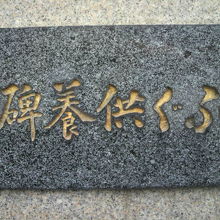 ふぐ供養碑